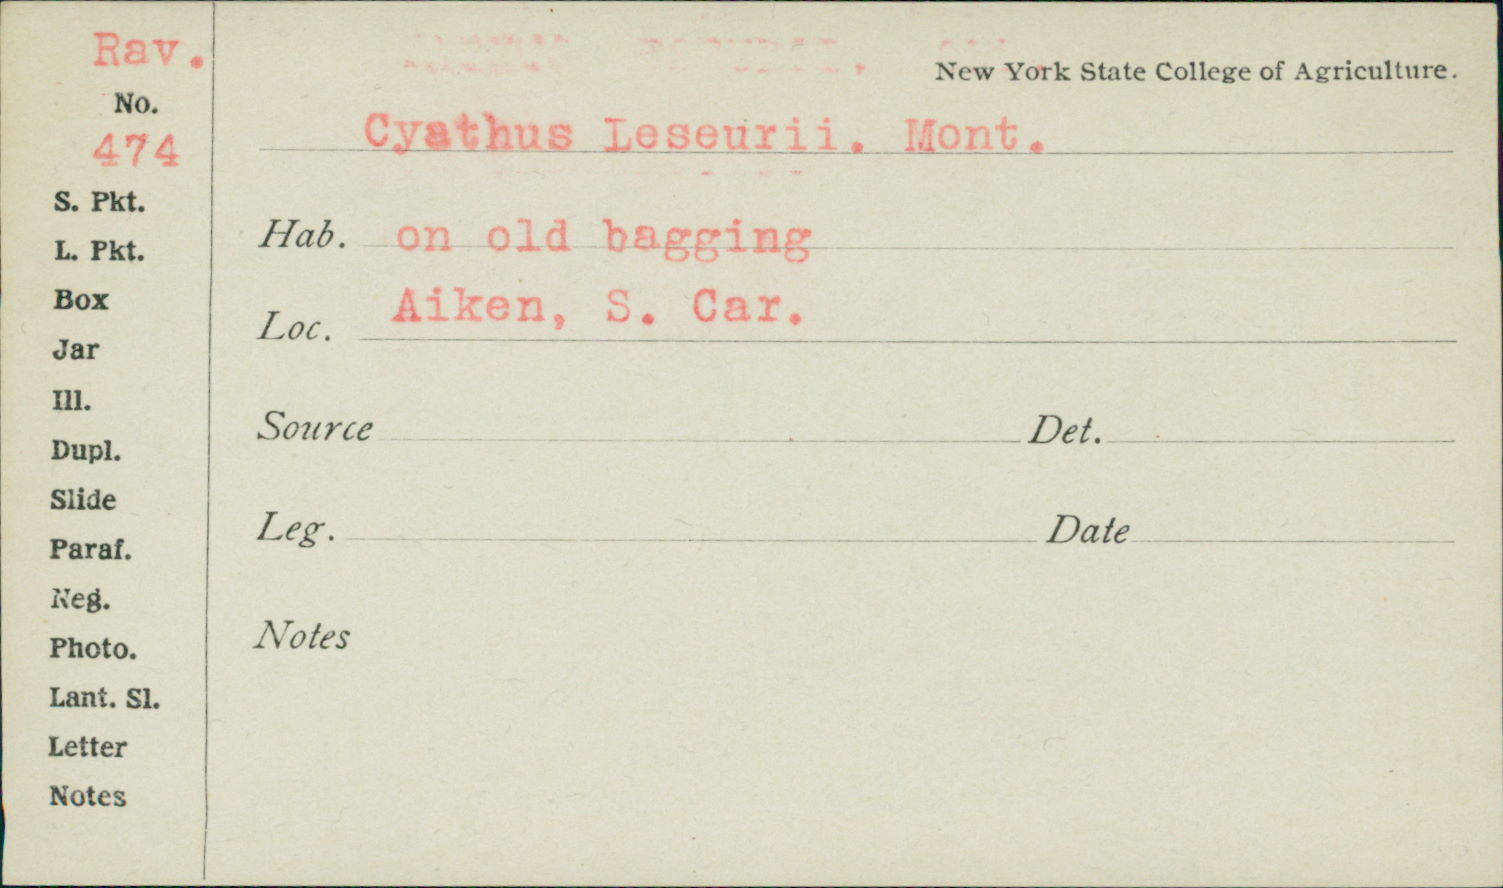 Rav.
No.
474
S. Pkt.
L. Pkt.
Box
Jar
Ill.
Dupl.
Slide
Paraf.
Neg.
Photo.
Lant. Sl.
Letter
Notes
New York State College of Agriculture.
Cyathus Leseurii. Mont.
Hab. on old bagging
Loc. Aiken, S. Car.
Source Det.
Leg. Date
Notes